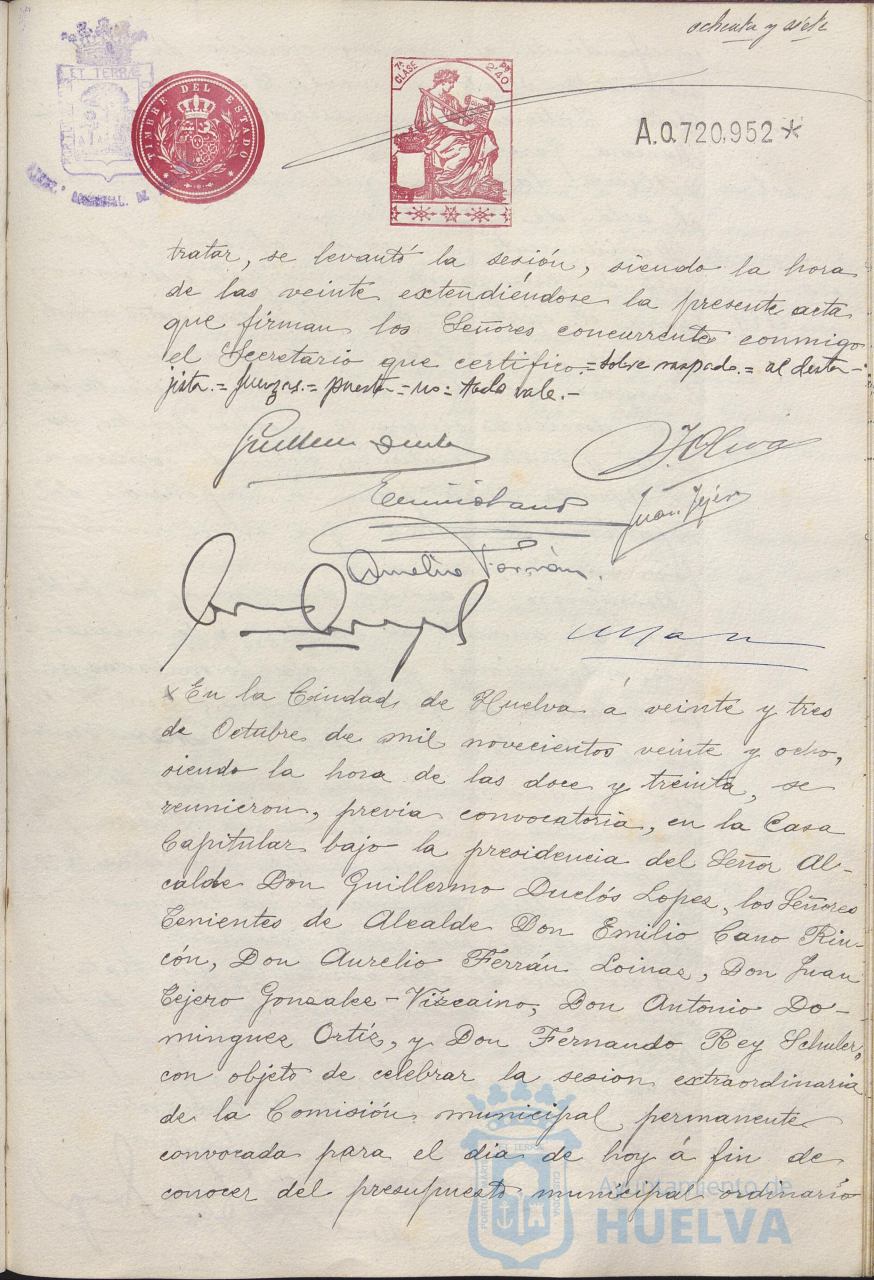 ochenta y siete
ET TERRÆ
TIMBRE DEL ESTADO
7ª CLASE 2'40 PS
A.0,720,952*
tratar, se levantó la sesión, siendo la hora
de las veinte extendiéndose la presente acta
que firman los Señores concurrentes conmigo
el Secretario que certifico.=sobre raspado.=al desta-
jista.= fuerzas.= puesta=no=todo vale.-
J. Oliva
Juan Tejero
Aurelio Ferrán.
En la Ciudad de Huelva á veinte y tres
de Octubre de mil novecientos veinte y ocho,
siendo la hora de las doce y treinta, se
reunieron, previa convocatoria, en la Casa
Capitular bajo la presidencia del Señor Al-
calde Don Guillermo Duclós Lopez, los Señores
Tenientes de Alcalde Don Emilio Cano Rin-
cón, Don Aurelio Ferrán Loinaz, Don Juan
Tejero Gonzalez-Vizcaino, Don Antonio Do-
minguez Ortíz, y Don Fernando Rey Schuler,
con objeto de celebrar la sesion extraordinaria
de la Comisión municipal permanente
convocada para el dia de hoy á fin de
conocer del presupuesto municipal ordinario
Ayuntamiento de
HUELVA